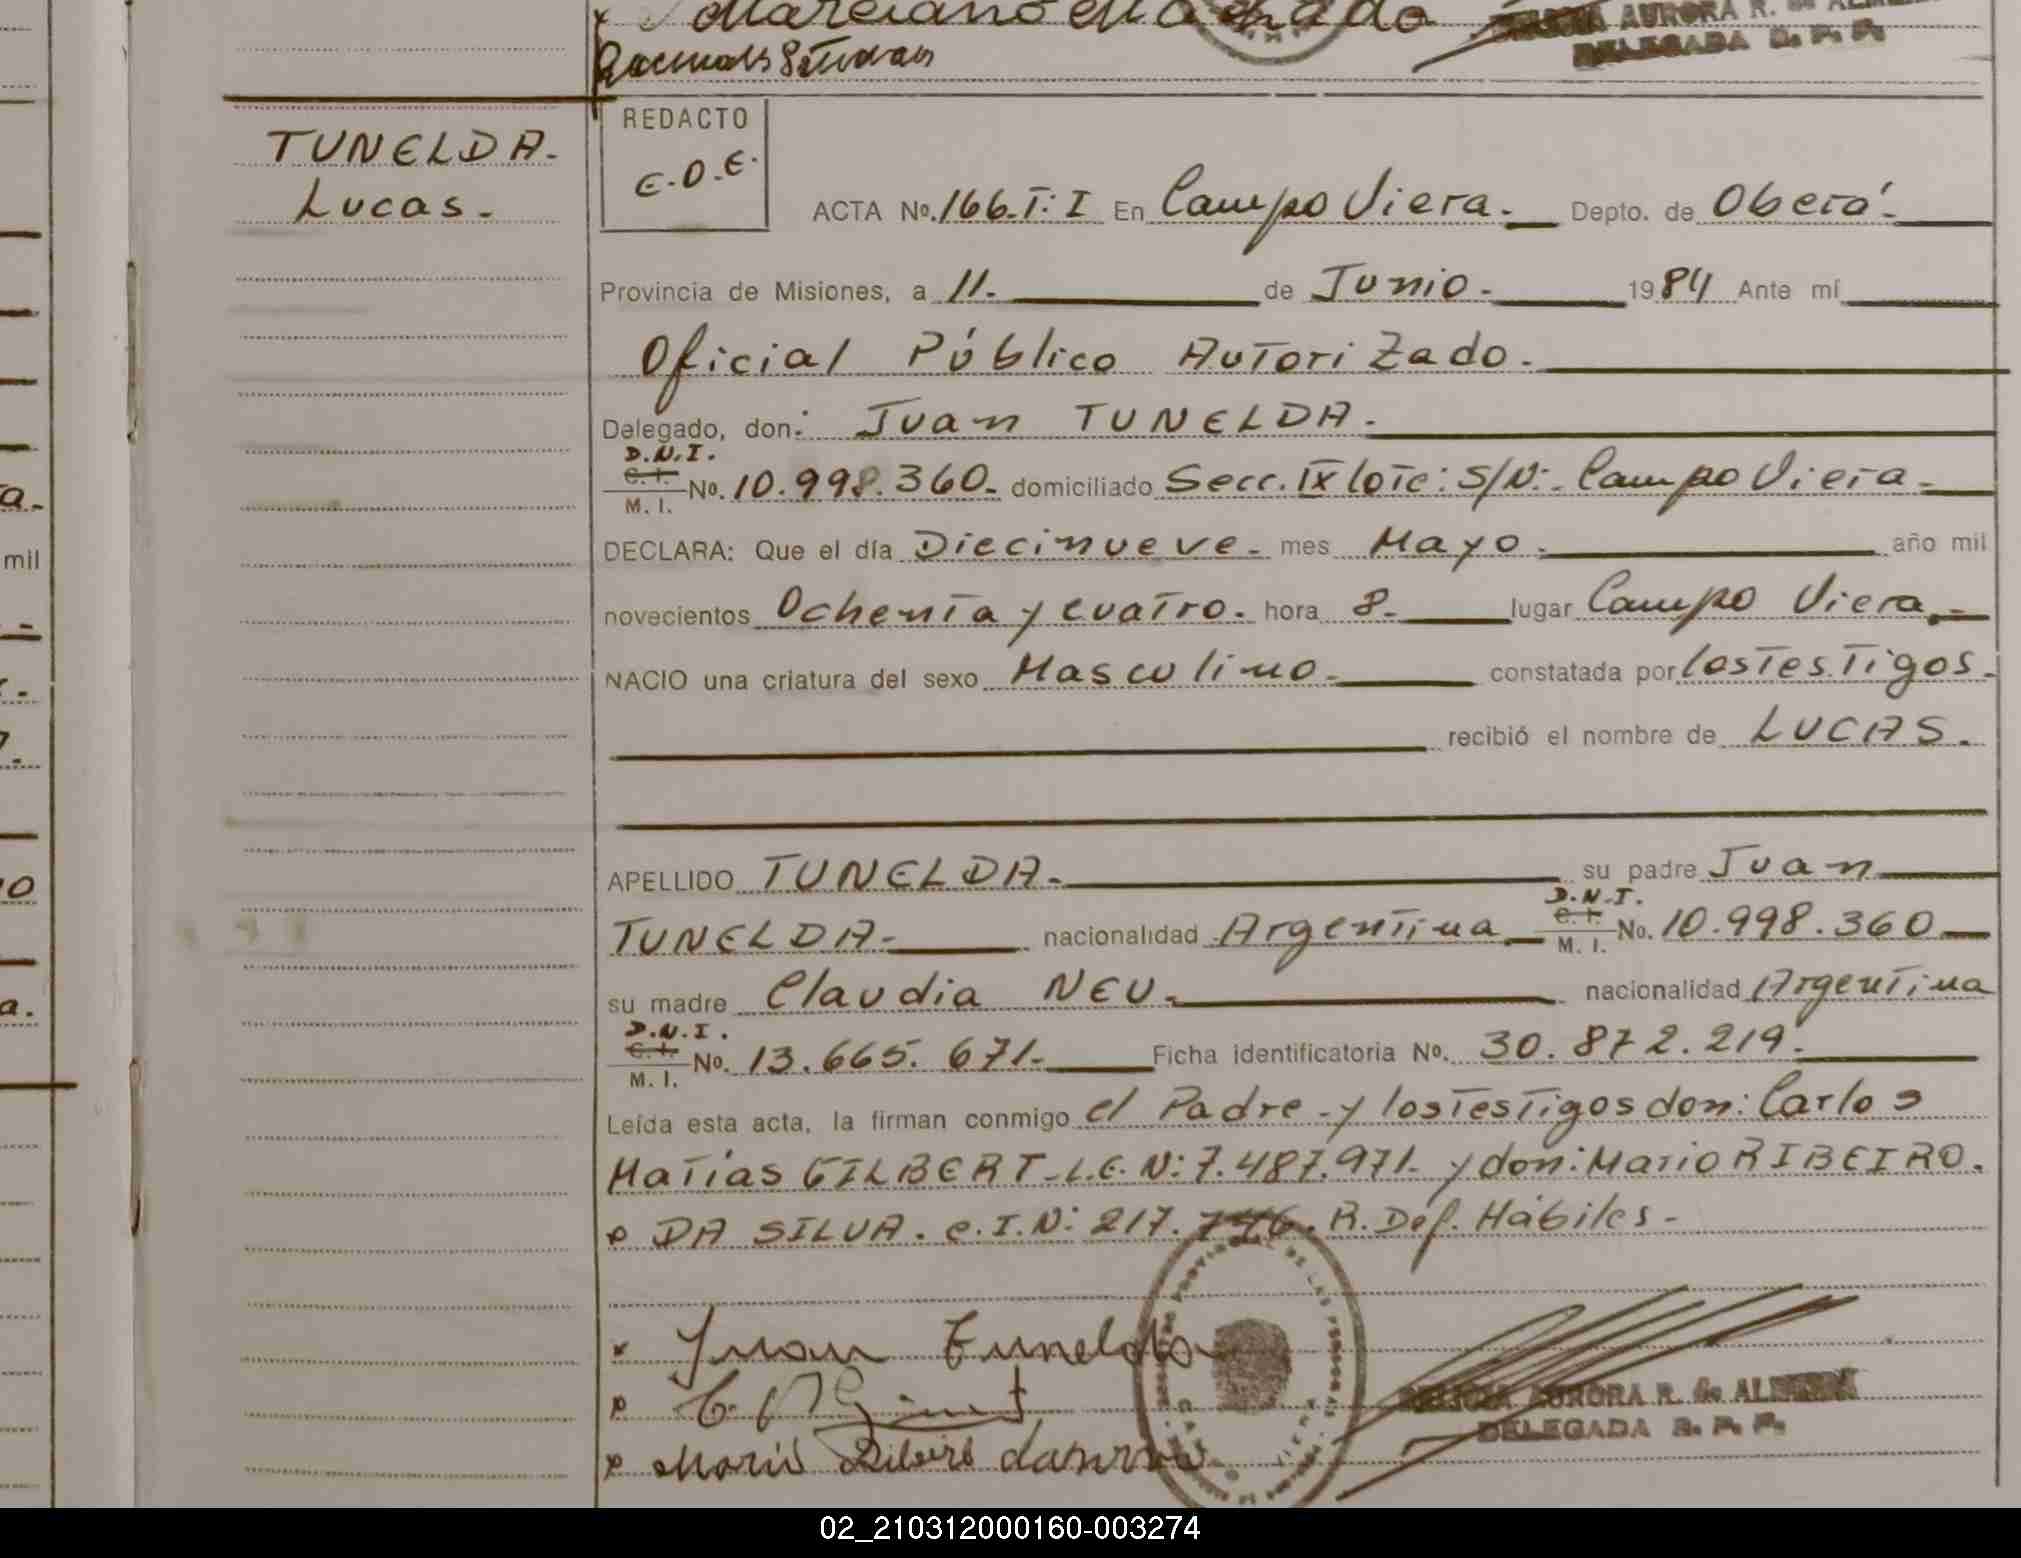 Marciano Machado
AURORA R. de
DELEGADA R. P. P.
TUNELDA.
Lucas.
REDACTO
E.D.E.
ACTA No. 166.T: I En Campo Viera. Depto. de Oberá.
Provincia de Misiones, a 11. de Junio. 1984 Ante mí
Oficial Público Autorizado.
Delegado, don: Juan TUNELDA.
D.N.I.
C. I.
M. I.
No. 10.998.360. domiciliado Secc. IX lote: S/N: Campo Viera.
DECLARA: Que el día Diecinueve. mes Mayo. año mil
novecientos Ochenta y cuatro. hora 8. lugar Campo Viera.
NACIO una criatura del sexo Masculino. constatada por los Testigos.
recibió el nombre de LUCAS.
APELLIDO TUNELDA. su padre Juan
D.N.I.
C. I.
M. I.
TUNELDA. nacionalidad Argentina No. 10.998.360
su madre Claudia NEU. nacionalidad Argentina
D.N.I.
C. I.
M. I.
No. 13.665.671. Ficha identificatoria No. 30.872.219.
Leída esta acta, la firman conmigo el Padre y los Testigos don: Carlos
Matias GILBERT L.E. N: 7.487.971. y don: Mario RIBEIRO.
DA SILVA. C.I.N: 217.746. R. Def. Hábiles.
Juan Tunelda
Mario Ribeiro
AURORA R. de
DELEGADA R. P. P.
a.
mil
7.
a.
02_210312000160-003274